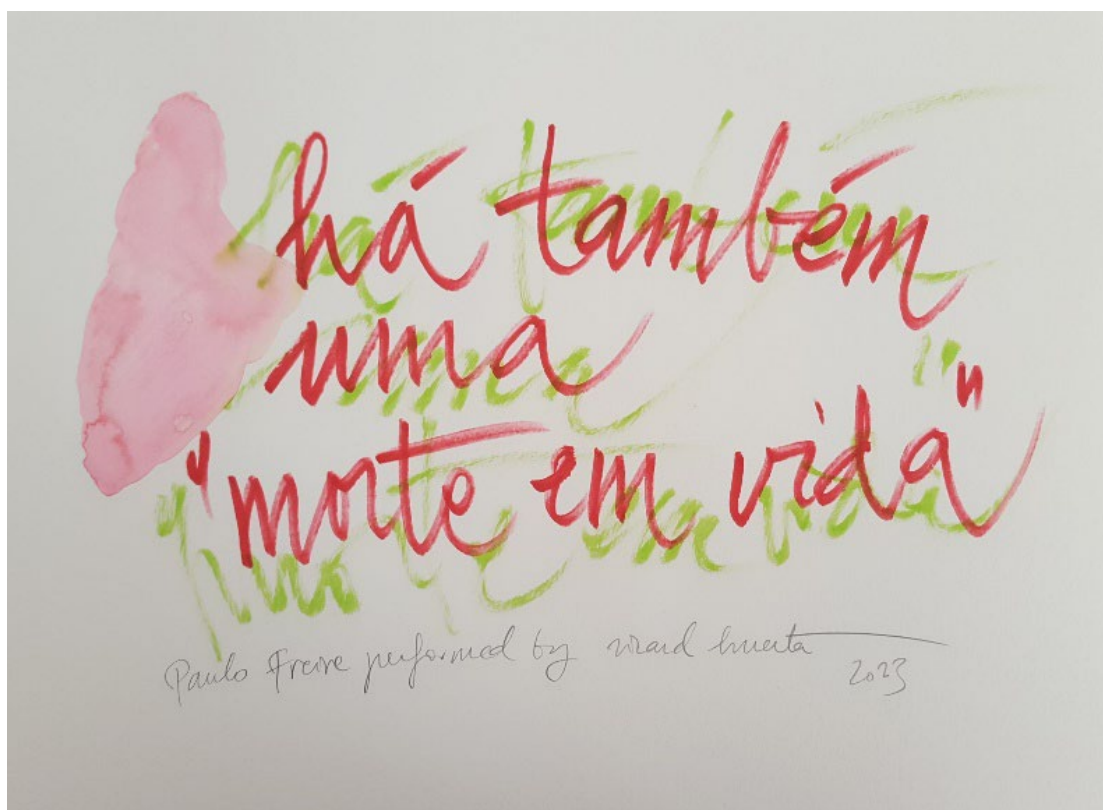 há também
uma
"morte em vida"
Paulo Freire performed by ricard huerta
2023